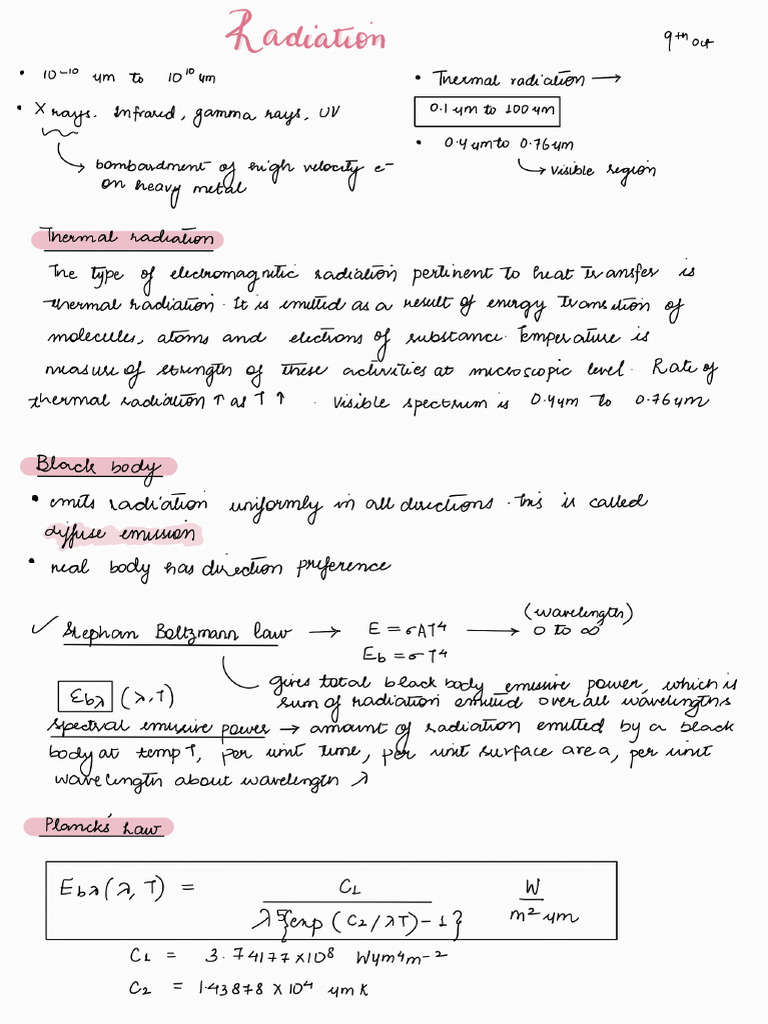 Radiation
9th Oct
• 10^-10 μm to 10^10 μm
• X rays. Infrared, gamma rays, UV
bombardment of high velocity e-
on heavy metal
• Thermal radiation →
0.1 μm to 100 μm
• 0.4 μm to 0.76 μm
visible region
Thermal radiation
The type of electromagnetic radiation pertinent to heat transfer is
thermal radiation. It is emitted as a result of energy transition of
molecules, atoms and electrons of substance. Temperature is
measure of strength of these activities at microscopic level. Rate of
thermal radiation ↑ as T ↑ . Visible spectrum is 0.4μm to 0.76μm
Black body
• emits radiation uniformly in all directions. This is called
diffuse emission
• real body has direction preference
✓ Stephan Boltzmann law → E = σAT⁴ → 0 to ∞ (wavelength)
Eb = σT⁴
gives total black body emissive power, which is
sum of radiation emitted over all wavelengths
Ebλ (λ,T)
spectral emissive power → amount of radiation emitted by a black
body at temp T, per unit time, per unit surface area, per unit
wavelength about wavelength λ
Planck's Law
Ebλ(λ, T) = C1 / λ⁵{exp (C2/λT) - 1} W / m² μm
C1 = 3.74177×10⁸ Wμm⁴m⁻²
C2 = 1.43878 × 10⁴ μmK